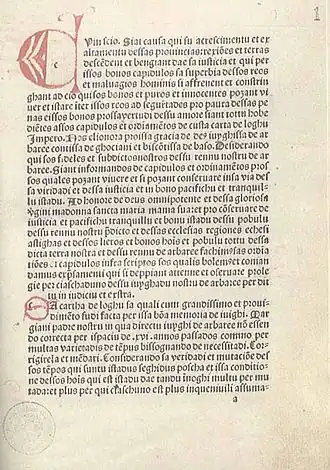 Cun scio. Siat causa qui su acrescimentu et ex
altamentu dessas prouincias rexiões et terras
descendent et bengiant dae sa iusticia et qui per
issos bonos capidulos sa superbia dessos reos
et maluagios hominis si affrenent et constrin
ghant ad cio qui sos bonos et puros et innocentes pozant vi
uer et istare iter issos reos ad seguridades pro paura dessas pe
nas et issos bonos pro sa vertudi dessu amore siant tottu hobe
diẽtes assos capidulos et ordiamẽtos de custa carta de loghu
Impero. Nos elionora prossa gracia de deus iuyghissa de ar
baree contissa de ghociani et biscõtissa de baso. Desiderando
qui sos fideles et subdictos nostros dessu rennu nostru de ar
baree siant informandos de capidulos et ordinamẽtos pros
sos quales pozant viuere et si pozant conseruare in sa via des
sa veridadi et dessa iusticia et in bono pacifichu et tranquil
lu istadu. Ad honore de deus omnipotente et dessa gloriosa
v̾gini madonna sancta maria mama sua et pro cõseruare de
iusticia et pacifichu tranquillu et bonu istadu dessu pobulu
dessu rennu nostru p̾dicto et dessas ecclesias regiones echesi
astighas et dessos lieros et bonos hoĩs et pobulu tottu dessa
dicta terra nostra et dessu rennu de arbaree fachimꝰ sas ordia
tiões : capidulos infra scriptos sos qualis bolemꝰ et coman
damus exp̃samenti qui si deppiant attener et obseruare pro le
gie per ciaschaduno dessu iuyghadu nostru de arbaree per dit
tu in iudiciu et extra.
LA cartha de loghu sa quali cum grandissimo et prouj
dimẽto fudi facta per issa bõa memoria de iuighi. Mar
giani padre nostru in qua directu iuyghi de arbaree nõ essen
do correcta per ispaciu de .xvi. annos passados commo per
multas varietadis de tẽpus bisognando de necessitadi. Cor
rigirela et mẽdari. Considerando sa veridadi et mutaciõe des
sos tẽpos qui suntu istadus seghidus poscha et issa conditio
ne dessos hoĩs qui est istadu dae tandu ĩnoghi multu per mu
tada: et plus per qui c̃iaschuno est plus inqueniuili assuma-
a
1